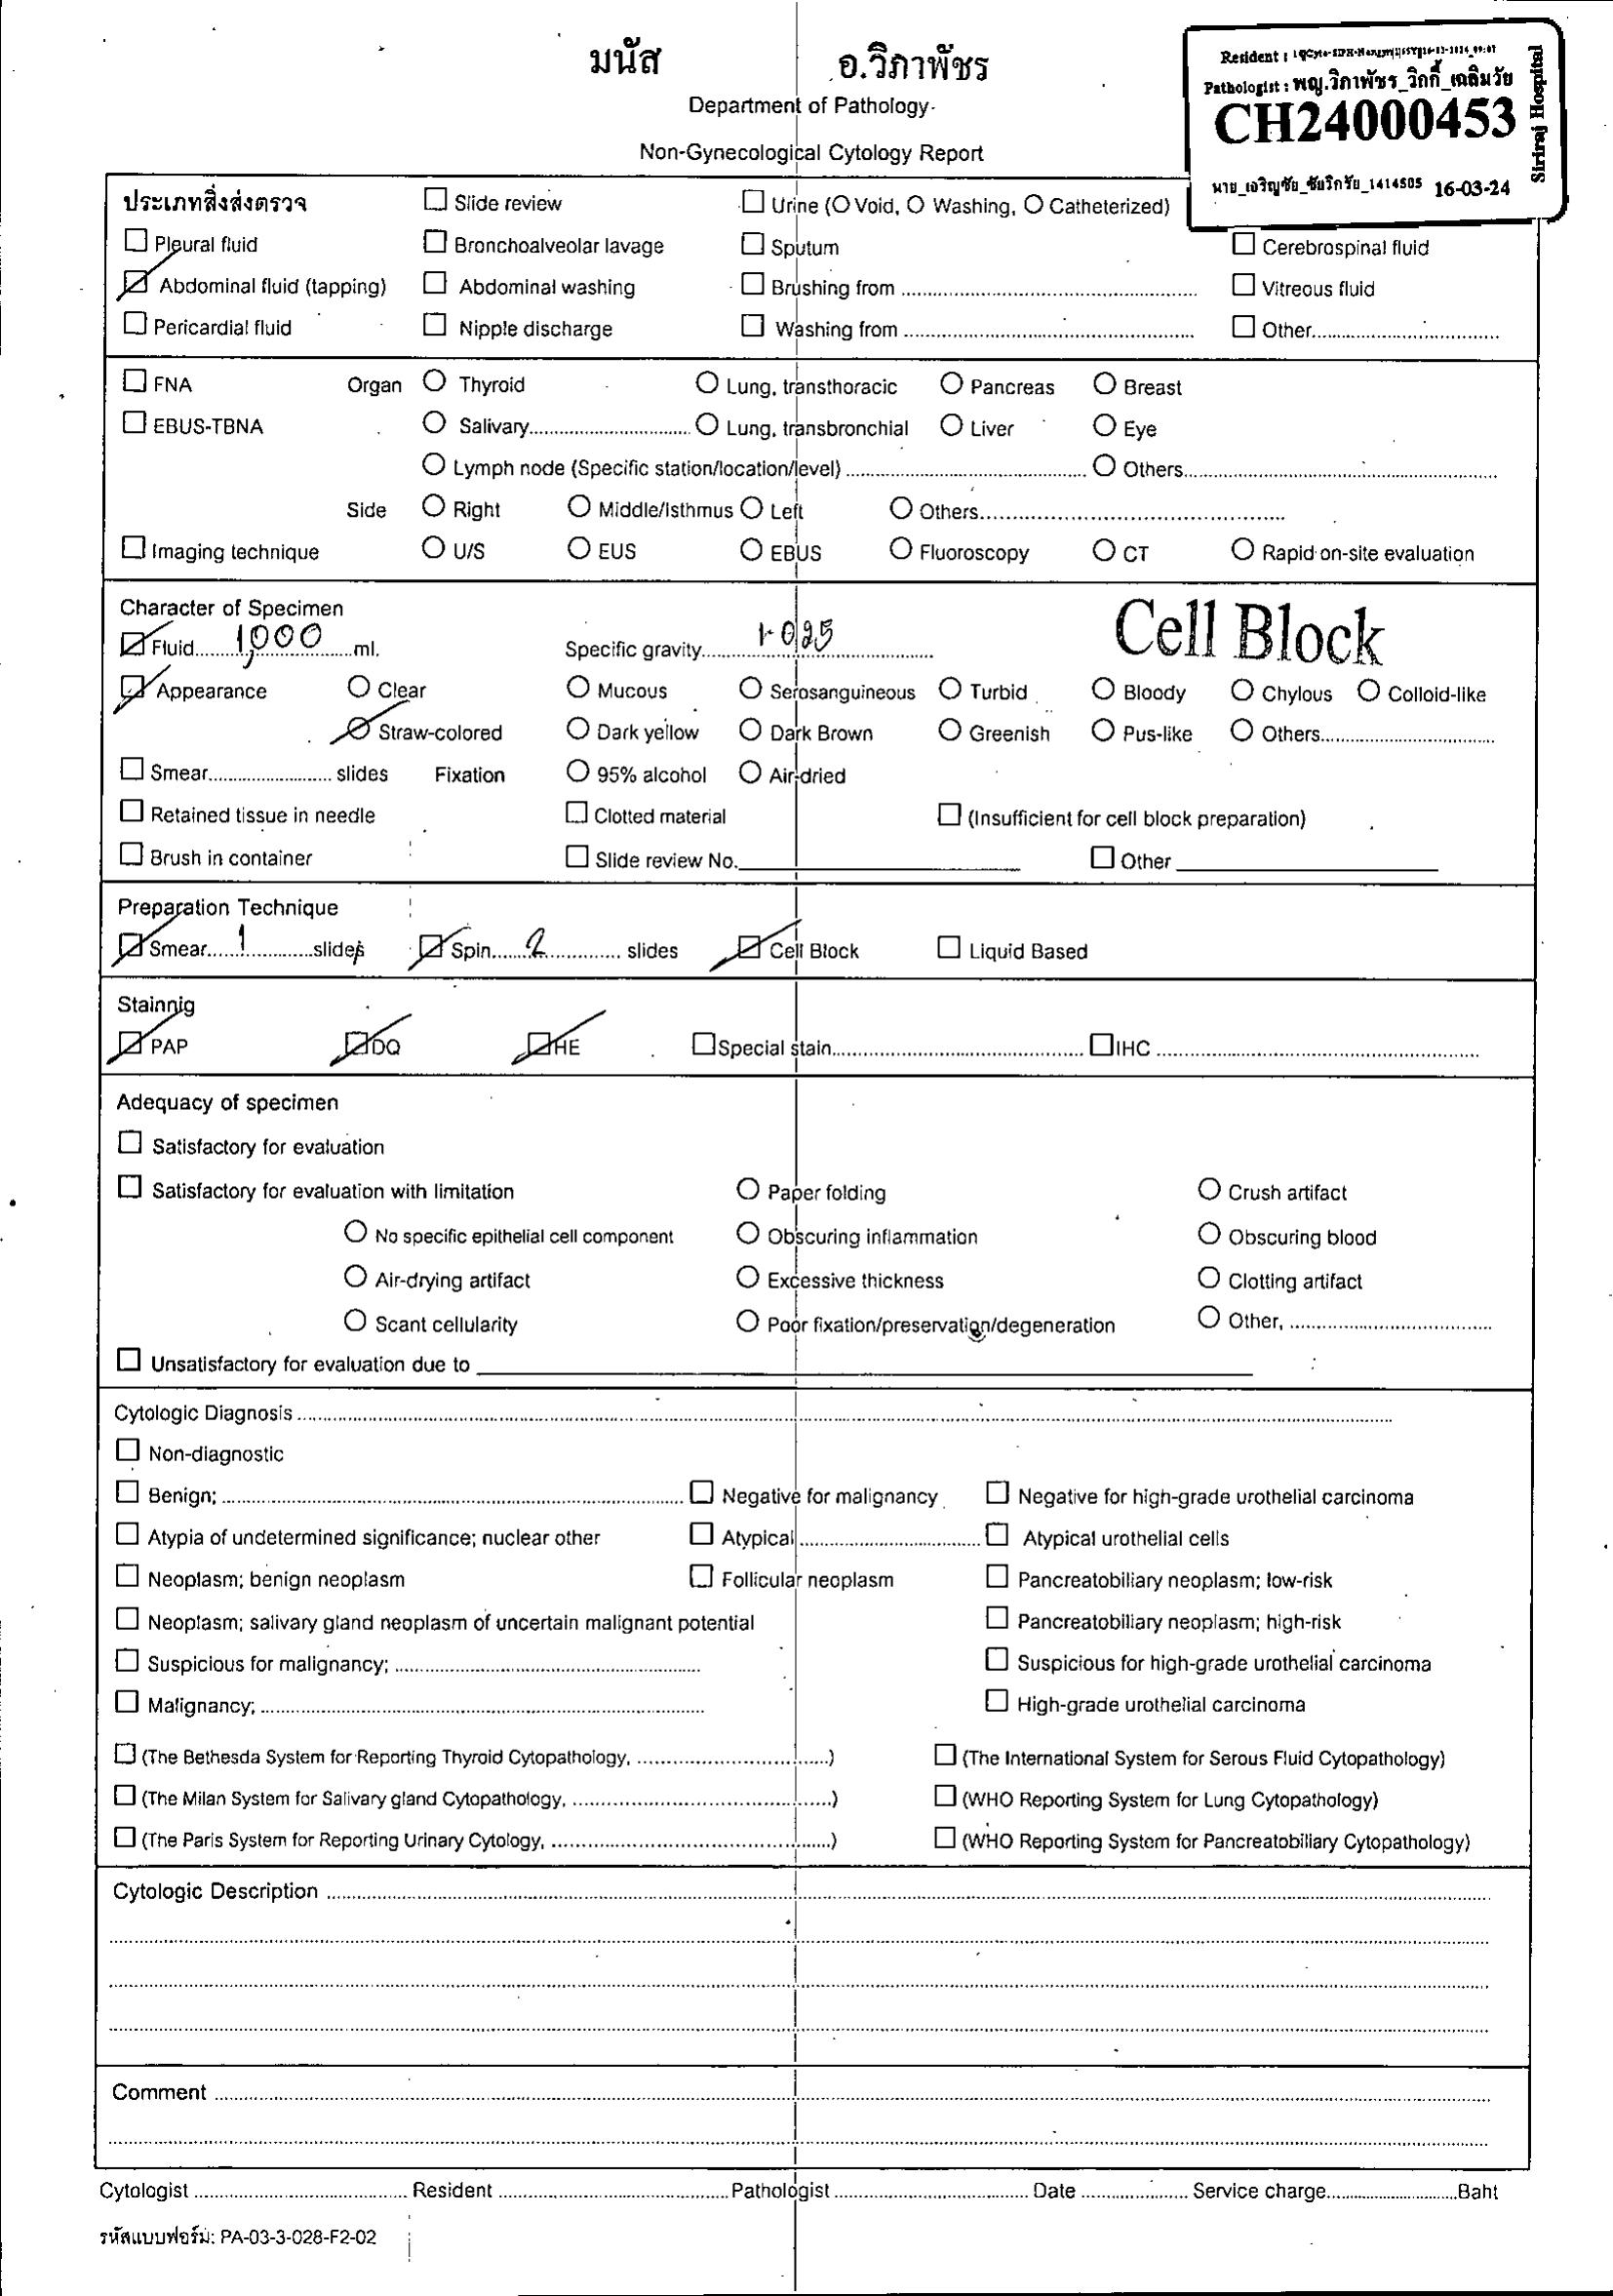 มนัส
อ.วิภาพัชร
Resident :
Pathologist : พญ.วิภาพัชร_วิกกี้_เฉลิมวัย
CH24000453
16-03-24
Siriraj Hospital
Department of Pathology
Non-Gynecological Cytology Report
ประเภทสิ่งส่งตรวจ Slide review Urine (O Void, O Washing, O Catheterized)
Pleural fluid Bronchoalveolar lavage Sputum Cerebrospinal fluid
Abdominal fluid (tapping) Abdominal washing Brushing from Vitreous fluid
Pericardial fluid Nipple discharge Washing from Other
FNA Organ Thyroid Lung, transthoracic Pancreas Breast
EBUS-TBNA Salivary Lung, transbronchial Liver Eye
Lymph node (Specific station/location/level) Others
Side Right Middle/Isthmus Left Others
Imaging technique U/S EUS EBUS Fluoroscopy CT Rapid on-site evaluation
Character of Specimen
Cell Block
Fluid 1,000 ml. Specific gravity 1.025
Appearance Clear Mucous Serosanguineous Turbid Bloody Chylous Colloid-like
Straw-colored Dark yellow Dark Brown Greenish Pus-like Others
Smear slides Fixation 95% alcohol Air-dried
Retained tissue in needle Clotted material (Insufficient for cell block preparation)
Brush in container Slide review No. Other
Preparation Technique
Smear 1 slides Spin 2 slides Cell Block Liquid Based
Stainnig
PAP DQ HE Special stain IHC
Adequacy of specimen
Satisfactory for evaluation
Satisfactory for evaluation with limitation Paper folding Crush artifact
No specific epithelial cell component Obscuring inflammation Obscuring blood
Air-drying artifact Excessive thickness Clotting artifact
Scant cellularity Poor fixation/preservation/degeneration Other,
Unsatisfactory for evaluation due to
Cytologic Diagnosis
Non-diagnostic
Benign; Negative for malignancy Negative for high-grade urothelial carcinoma
Atypia of undetermined significance; nuclear other Atypical Atypical urothelial cells
Neoplasm; benign neoplasm Follicular neoplasm Pancreatobiliary neoplasm; low-risk
Neoplasm; salivary gland neoplasm of uncertain malignant potential Pancreatobiliary neoplasm; high-risk
Suspicious for malignancy; Suspicious for high-grade urothelial carcinoma
Malignancy; High-grade urothelial carcinoma
(The Bethesda System for Reporting Thyroid Cytopathology, ) (The International System for Serous Fluid Cytopathology)
(The Milan System for Salivary gland Cytopathology, ) (WHO Reporting System for Lung Cytopathology)
(The Paris System for Reporting Urinary Cytology, ) (WHO Reporting System for Pancreatobiliary Cytopathology)
Cytologic Description
Comment
Cytologist Resident Pathologist Date Service charge Baht
รหัสแบบฟอร์ม: PA-03-3-028-F2-02